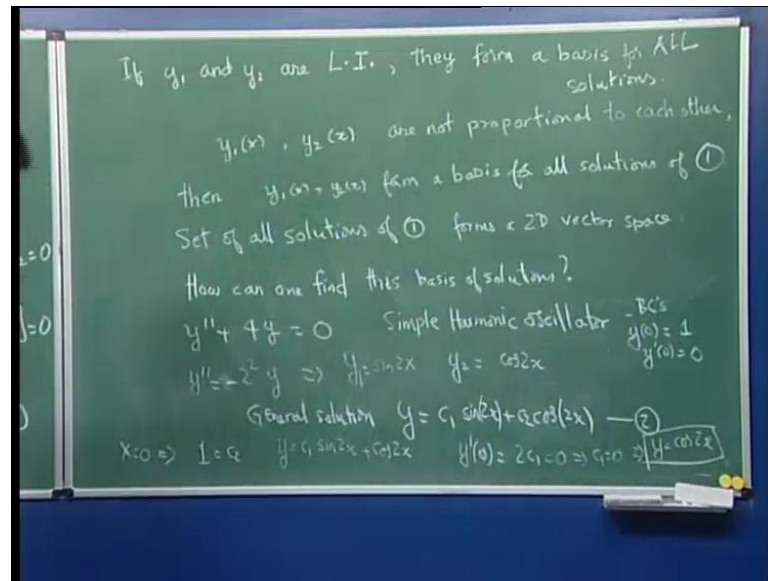 If y₁ and y₂ are L.I., they form a basis for ALL
solutions.
y₁(x), y₂(x) are not proportional to each other,
then y₁(x), y₂(x) form a basis for all solutions of ①
Set of all solutions of ① forms a 2D vector space
How can one find this basis of solutions?
y'' + 4y = 0 Simple Harmonic oscillator - BC's
y(0) = 1
y'(0) = 0
y'' = -2² y ⇒ y₁ = sin2x y₂ = cos2x
General solution y = c₁ sin(2x) + c₂ cos(2x) — ②
x=0 ⇒ 1 = c₂ y = c₁ sin2x + cos2x y'(0) = 2c₁ = 0 ⇒ c₁=0 ⇒ y = cos2x
=0
=0
)